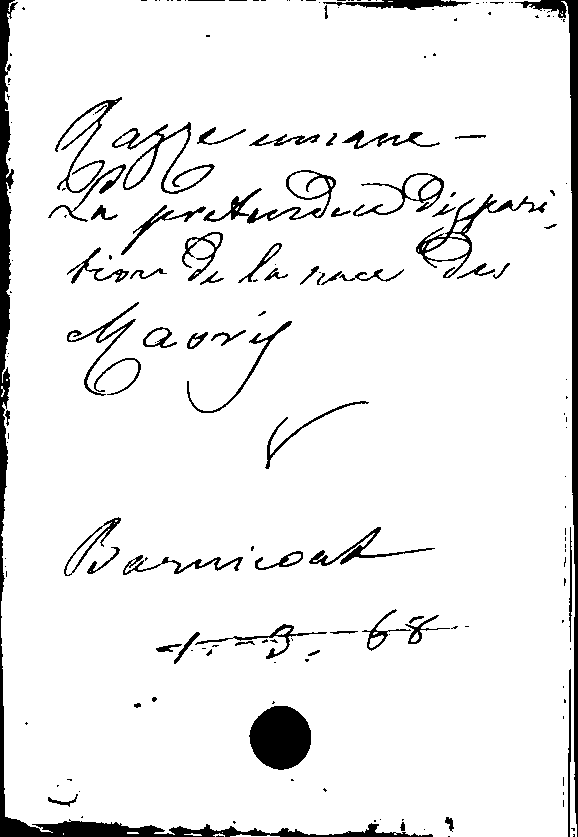 Razze umane —
La pretendue dispari-
tion de la race des
Maoris
Barnicoat
1. B. 68